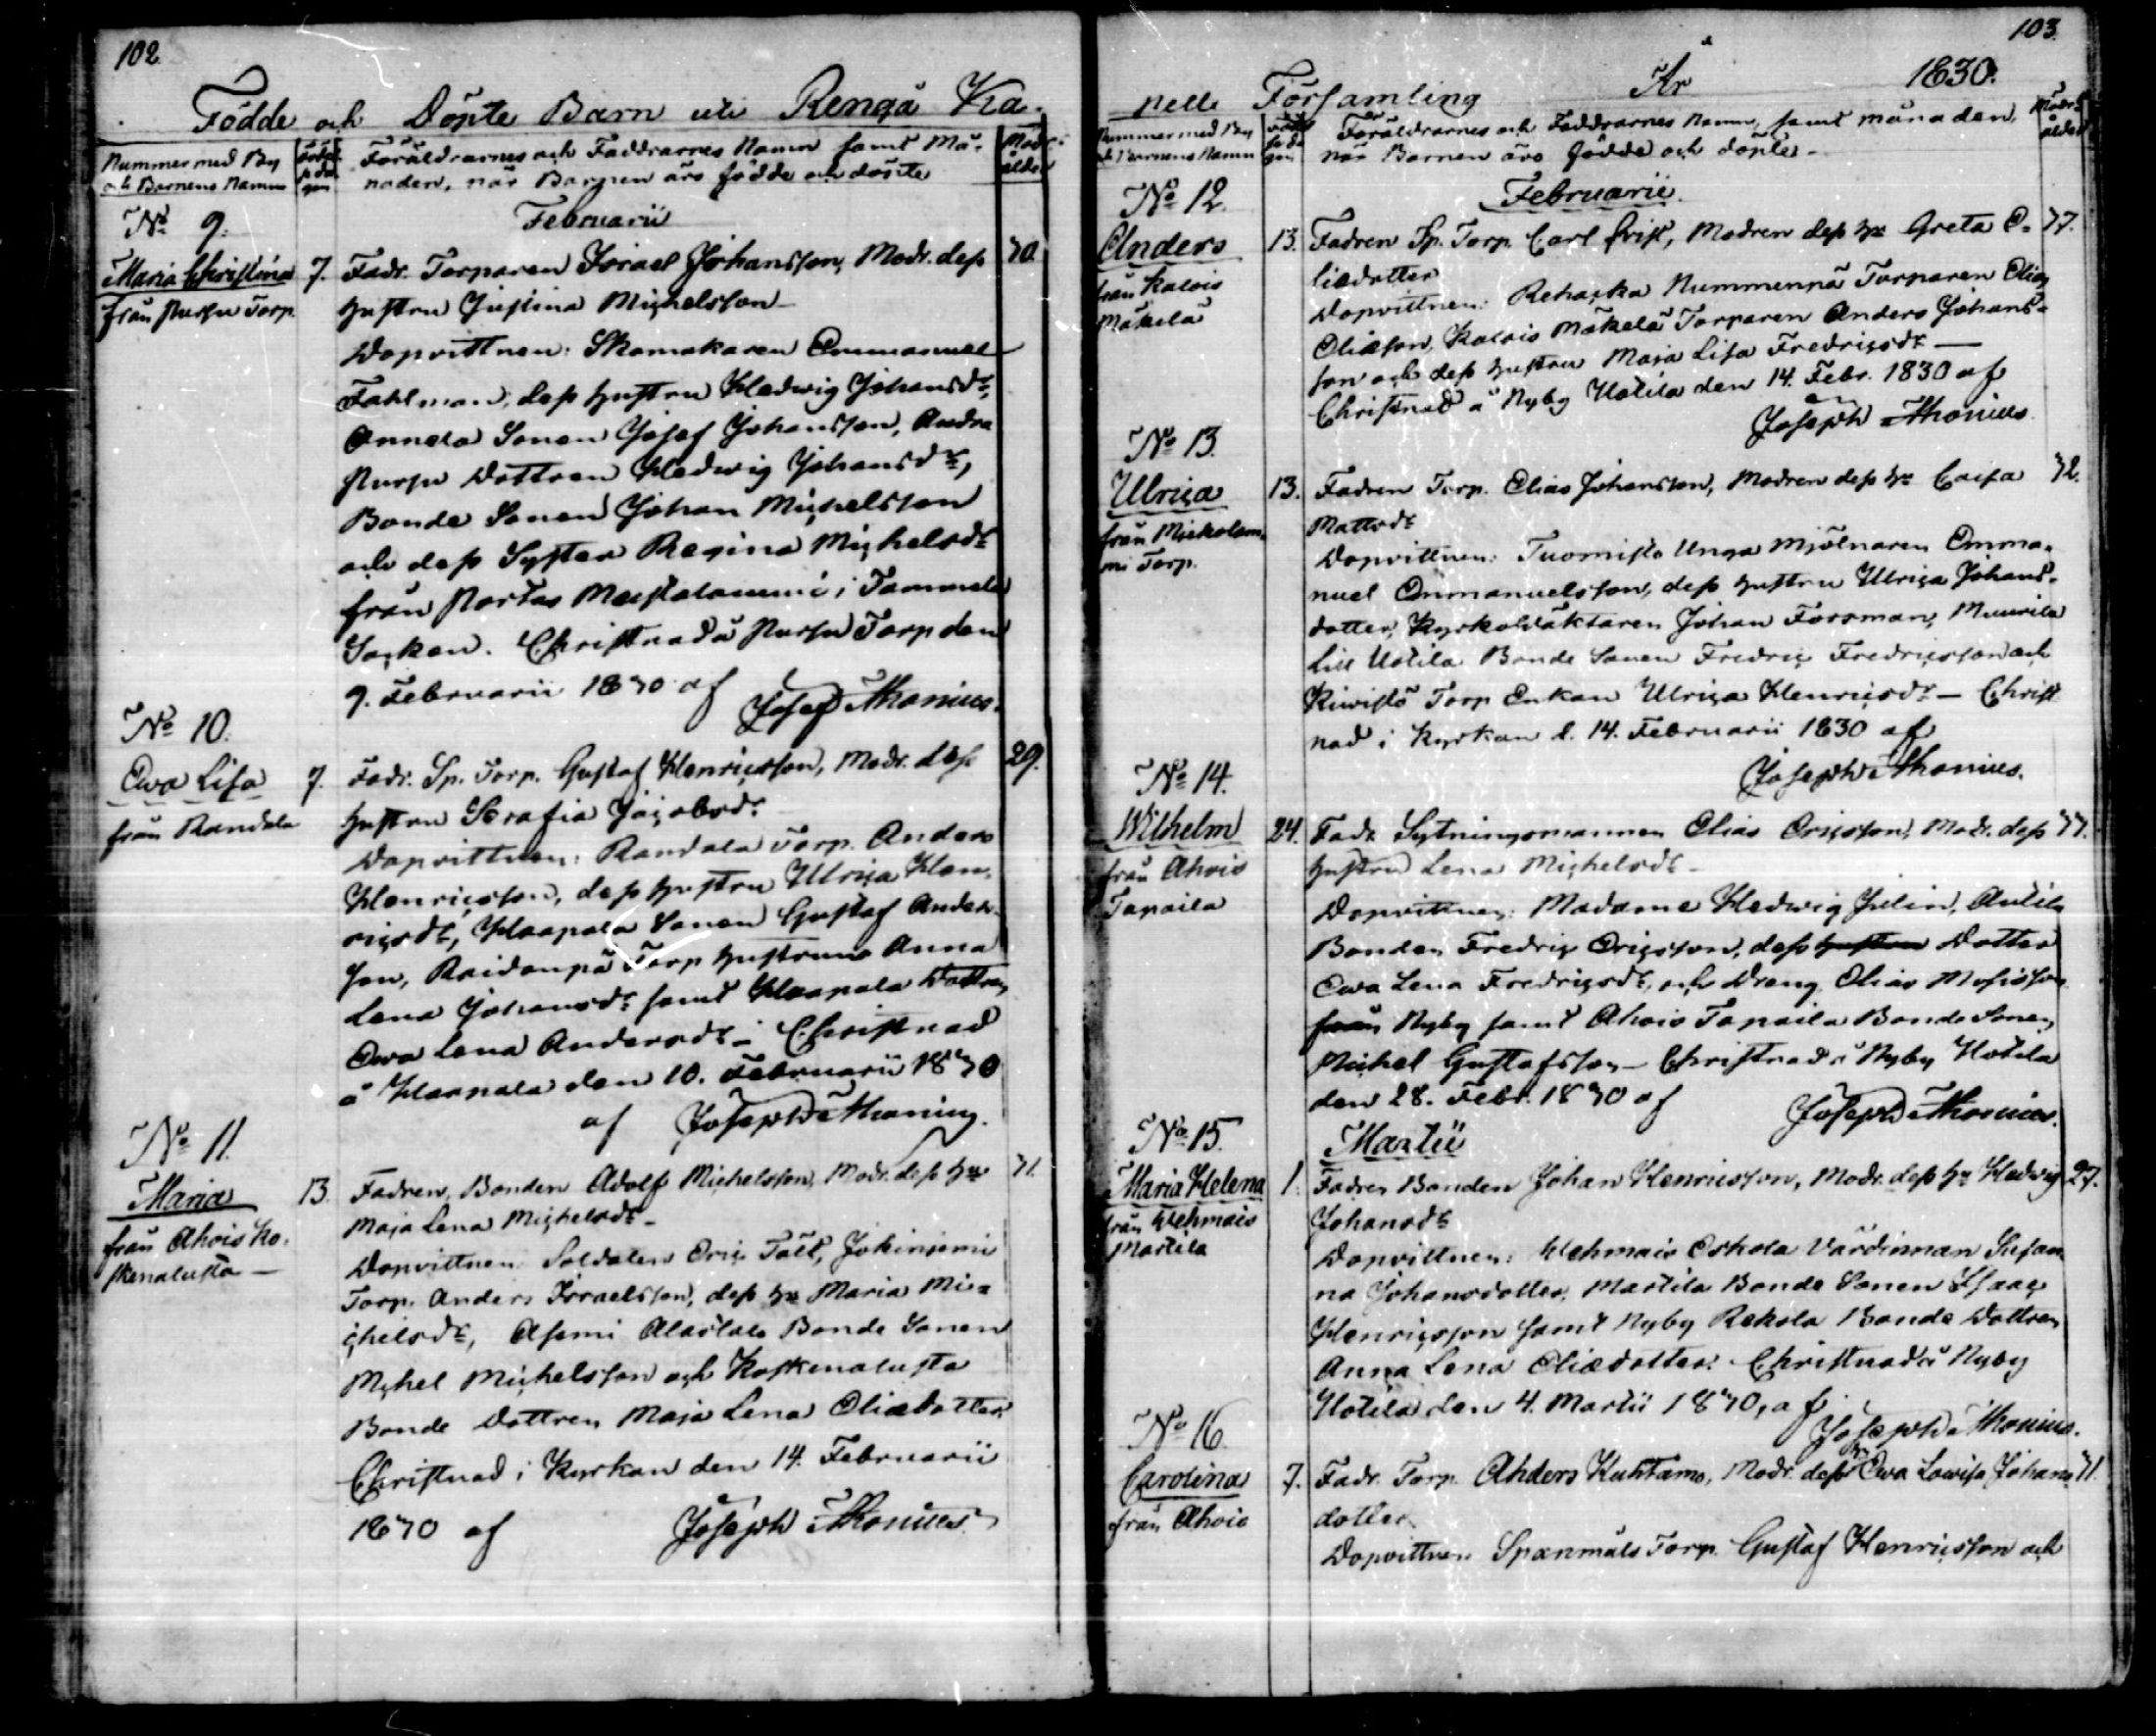 102.
Födde och Döpte Barn uti Rengå Ka-
Nummer med By
och Barnens Namn
Föräldrarnes och Faddrarnes Namn samt Må-
naden, när Barnen äro födde och döpte
Modr.
ålder
Februarii
No 9.
Maria Christina
från Nursu Torp.
7.
Fadr. Torparen Israel Johansson, Modr. dess
30.
hustru Justina Michelsson
Dopvittnen: Skomakaren Emmanuel
Fahlman, dess hustru Hedwig Johansdr,
Annala Sonen Josef Johansson, Andra
Nursu Dottren Hedwig Johansdr,
Bonde Sonen Johan Michelsson
och dess Syster Regina Michelsdr
från Portas i Tammela
Socken. Christnad å Nursu Torp den
9. Februarii 1830 af
Josef Thonius.
No 10.
Ewa Lisa
från Randala
7.
Fadr. Sp. Torp. Gustaf Henricsson, Modr. dess
29.
hustru Serafia Jacobsdr.
Dopvittnen: Randala Torp. Anders
Henricsson, dess hustru Ulrica Hen-
ricsdr, Haapala Sonen Gustaf Anders-
son, Raidanpä Torp hustrun Anna
Lena Johansdr samt Haapala Dottren
Ewa Lena Andersdr - Christnad
å Haapala den 10. Februarii 1830
af Joseph Thonius.
No 11.
Maria
från Ahois Ko-
skenalusta
13.
Fadren, Bonden Adolf Michelsson, Modr. dess hu
31.
Maja Lena Michelsdr -
Dopvittnen: Soldaten Eric Tält, Jokiniemi
Torp. Anders Israelsson, dess hu Maria Mi-
chelsdr, Asemi Alastalo Bonde Sonen
Michel Michelsson och Koskenalusta
Bonde Dottren Maja Lena Eliædotter.
Christnad i Kyrkan den 14. Februarii
1830 af Joseph Thonius
103.
pelle Församling År 1830.
Nummer med By
och Barnens Namn
Föräldrarnes och Faddrarnes Namn, samt månaden,
när Barnen äro födde och döpte -
Modr.
ålder
Februarii.
No 12.
Anders
från Kalois
Mäkelä
13.
Fadren Sp. Torp. Carl Qvist, Modren dess hu Greta E-
37.
liædotter
Dopvittnen: Rehaska Nummenpä Torparen Elias
Eliæson, Kalois Mäkelä Torparen Anders Johans-
son och dess hustru Maja Lisa Fredricsdr —
Christnad å Nyby Uotila den 14. Febr. 1830 af
Joseph Thonius.
No 13.
Ulrica
från Mickolam-
mi Torp.
13.
Fadren Torp. Elias Johansson, Modren dess hu Caisa
32.
Mattsdr
Dopvittnen: Tuomisto Unga Mjölnaren Emma-
nuel Emmanuelsson, dess hustru Ulrica Johans-
dotter, Kyrkoväktaren Johan Forsman, Muurila
Lill Uotila Bonde Sonen Fredric Fredricsson och
Kiwistö Torp Enkan Ulrica Henricsdr - Christ
nad i Kyrkan d. 14. Februarii 1830 af
Joseph Thonius.
No 14.
Wilhelm
från Ahois
Tapaila
24.
Fadr Sytningsmannen Elias Ericsson, Modr. dess
37.
hustru Lena Michelsdr -
Dopvittnen: Madame Hedwig Julin, Antila
Bonden Fredric Ericsson, dess hustru Dotter
Ewa Lena Fredricsdr, och Dreng Elias Mosisson
från Nyby samt Ahois Tapaila Bonde Sonen
Michel Gustafsson - Christnad å Nyby Uotila
den 28. Febr. 1830 af Joseph Thonius.
Martii
No 15.
Maria Helena
från Wehmais
Martila
1.
Fadren Bonden Johan Henricsson, Modr. dess hu Hedwig
27.
Johansdr
Dopvittnen: Wehmais Eskola Värdinnan Susan
na Johansdotter, Martila Bonde Sonen Isaac
Henricsson samt Nyby Rekola Bonde Dottren
Anna Lena Eliædotter. Christnad å Nyby
Uotila den 4. Martii 1830, af
Joseph Thonius.
No 16.
Carolina
från Ahois
7.
Fadr. Torp. Anders Kuhtamo, Modr. dess hu Ewa Lowisa Johans
31.
dotter.
Dopvittnen Spanmåls Torp. Gustaf Henricsson och